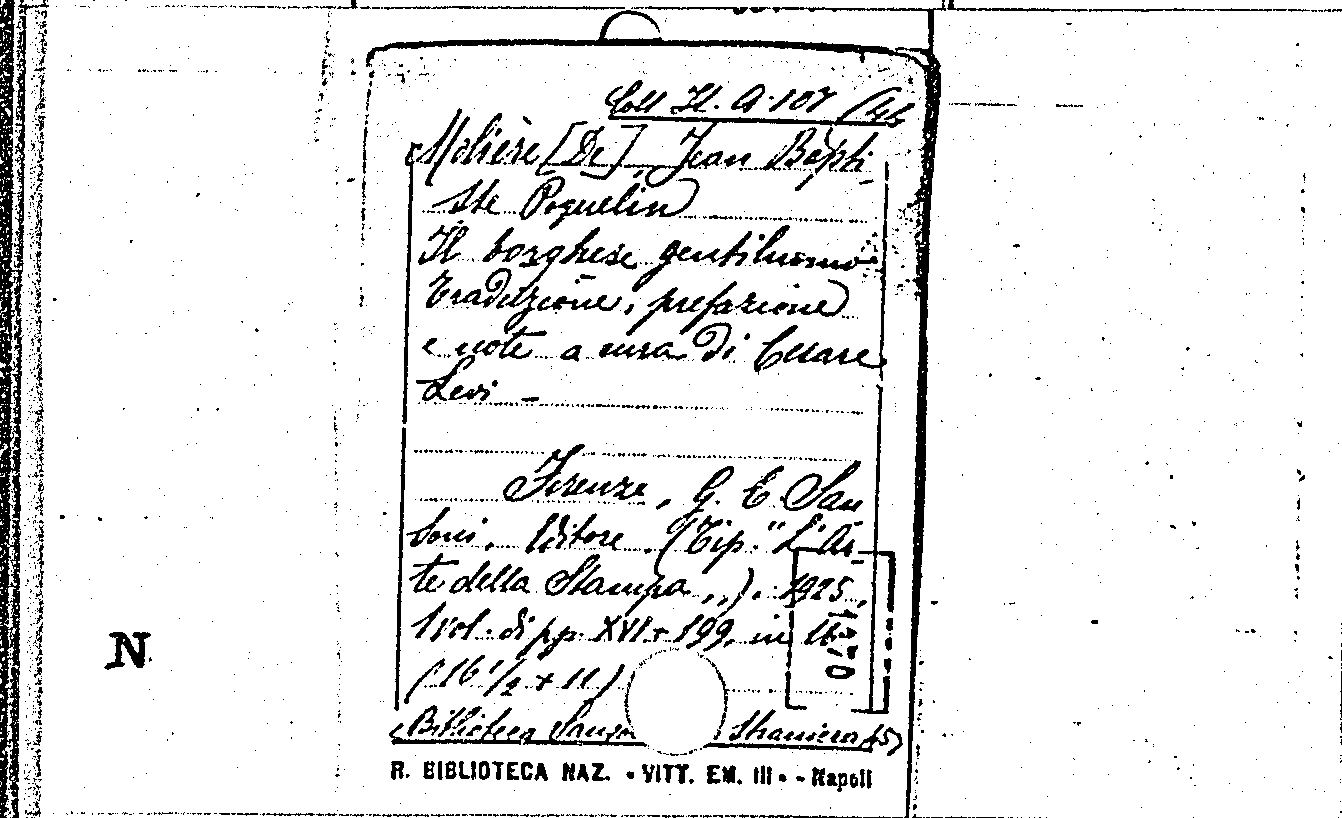 Coll It. A. 107 /46
Molière [De], Jean Bapti-
ste Poquelin
Il borghese gentiluomo
traduzione, prefazione
e note a cura di Cesare
Levi -
Firenze, G. C. San
soni, Editore. (Tip. "L'Ar-
te della Stampa,,). 1925,
1 vol. di pp. XVI + 199, in 16°
(16 1/2 + 11)
(Biblioteca Sanso Straniera 45)
N
R. BIBLIOTECA NAZ. • VITT. EM. III • - Napoli